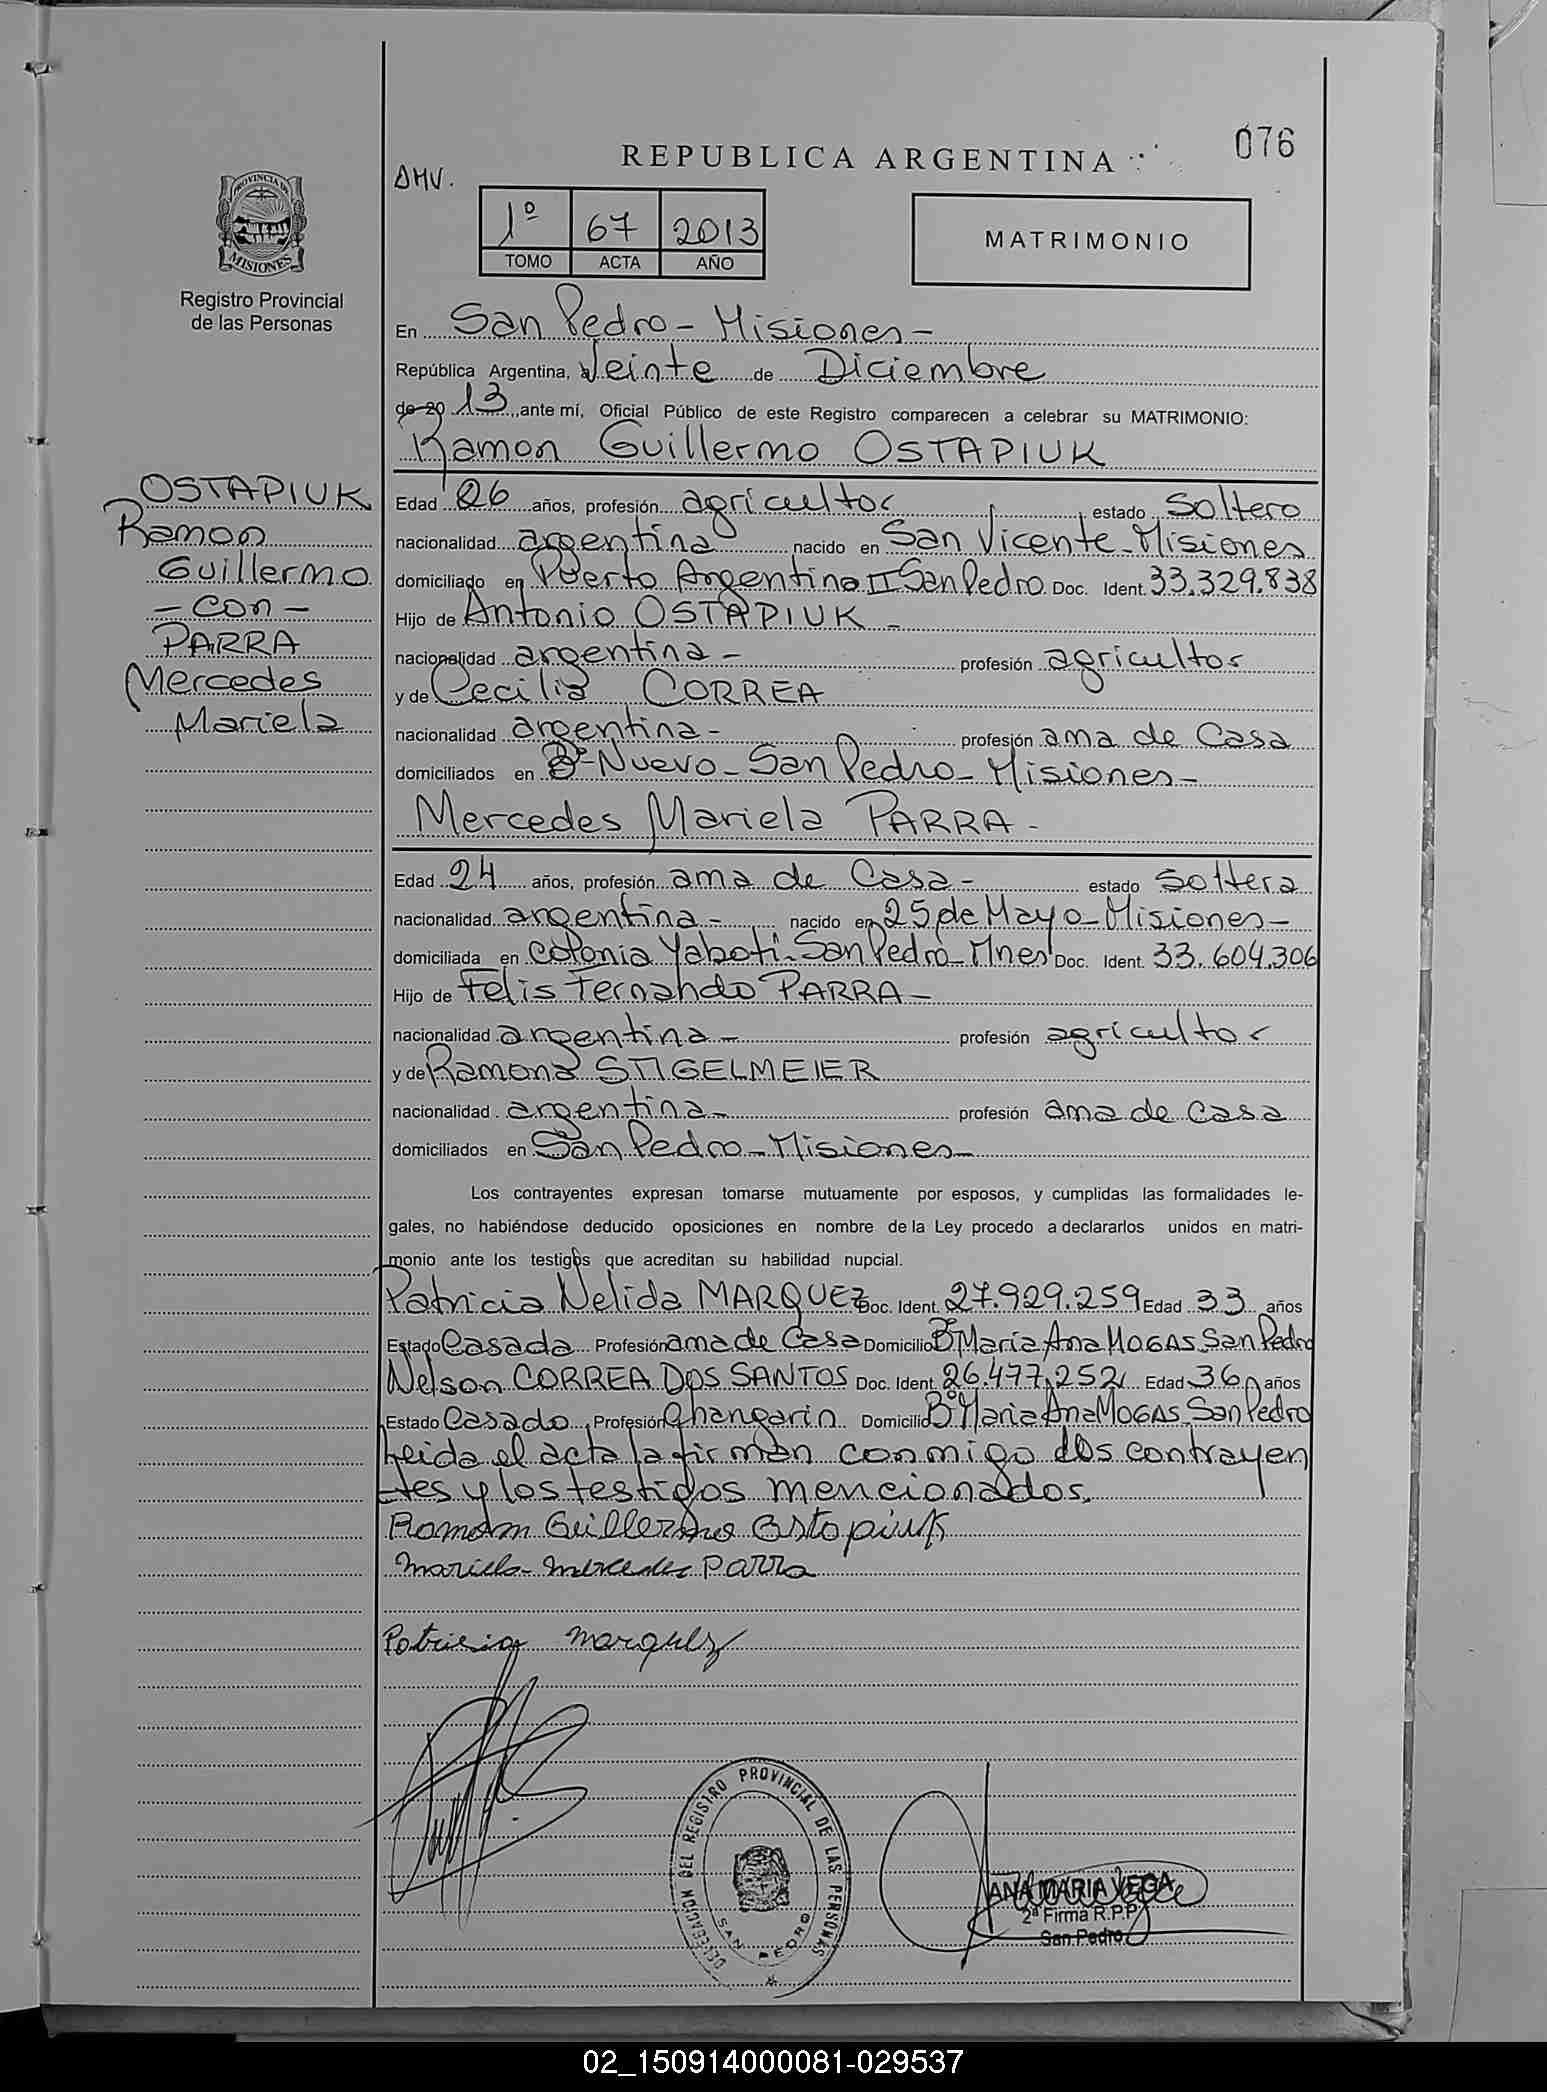 076
REPUBLICA ARGENTINA
AMV.
1º 67 2013
TOMO ACTA AÑO
MATRIMONIO
PROVINCIA DE
MISIONES
Registro Provincial
de las Personas
En San Pedro - Misiones -
República Argentina, a Veinte de Diciembre
de 20 13 ,ante mí, Oficial Público de este Registro comparecen a celebrar su MATRIMONIO:
Ramon Guillermo OSTAPIUK
OSTAPIUK
Ramon
Guillermo
- con -
PARRA
Mercedes
Mariela
Edad 26 años, profesión agricultor estado soltero
nacionalidad argentina nacido en San Vicente - Misiones
domiciliado en Puerto Argentino II San Pedro Doc. Ident. 33.329.838
Hijo de Antonio OSTAPIUK -
nacionalidad argentina - profesión agricultor
y de Cecilia CORREA
nacionalidad argentina - profesión ama de casa
domiciliados en Bº Nuevo - San Pedro - Misiones -
Mercedes Mariela PARRA -
Edad 24 años, profesión ama de casa - estado soltera
nacionalidad argentina - nacido en 25 de Mayo - Misiones -
domiciliada en colonia Yaboti - San Pedro - Mnes Doc. Ident. 33.604.306
Hijo de Felis Fernando PARRA -
nacionalidad argentina - profesión agricultor
y de Ramona STIGELMEIER
nacionalidad argentina - profesión ama de casa
domiciliados en San Pedro - Misiones -
Los contrayentes expresan tomarse mutuamente por esposos, y cumplidas las formalidades le-
gales, no habiéndose deducido oposiciones en nombre de la Ley procedo a declararlos unidos en matri-
monio ante los testigos que acreditan su habilidad nupcial.
Patricia Nelida MARQUEZ Doc. Ident. 27.929.259 Edad 33 años
Estado Casada Profesión ama de casa Domicilio Bº Maria Ana MOGAS San Pedro
Nelson CORREA DOS SANTOS Doc. Ident. 26.477.252 Edad 36 años
Estado Casado Profesión Changarin Domicilio Bº Maria Ana MOGAS - San Pedro
Leida el acta la firman conmigo los contrayen
tes y los testigos mencionados.
Ramom Guillermo Ostapiuk
Mariela Mercedes Parra
Patricia Marquez
DELEGACION DEL REGISTRO PROVINCIAL DE LAS PERSONAS
SAN PEDRO
ANA MARIA VEGA
2ª Firma R.P.P.
San Pedro
02_150914000081-029537